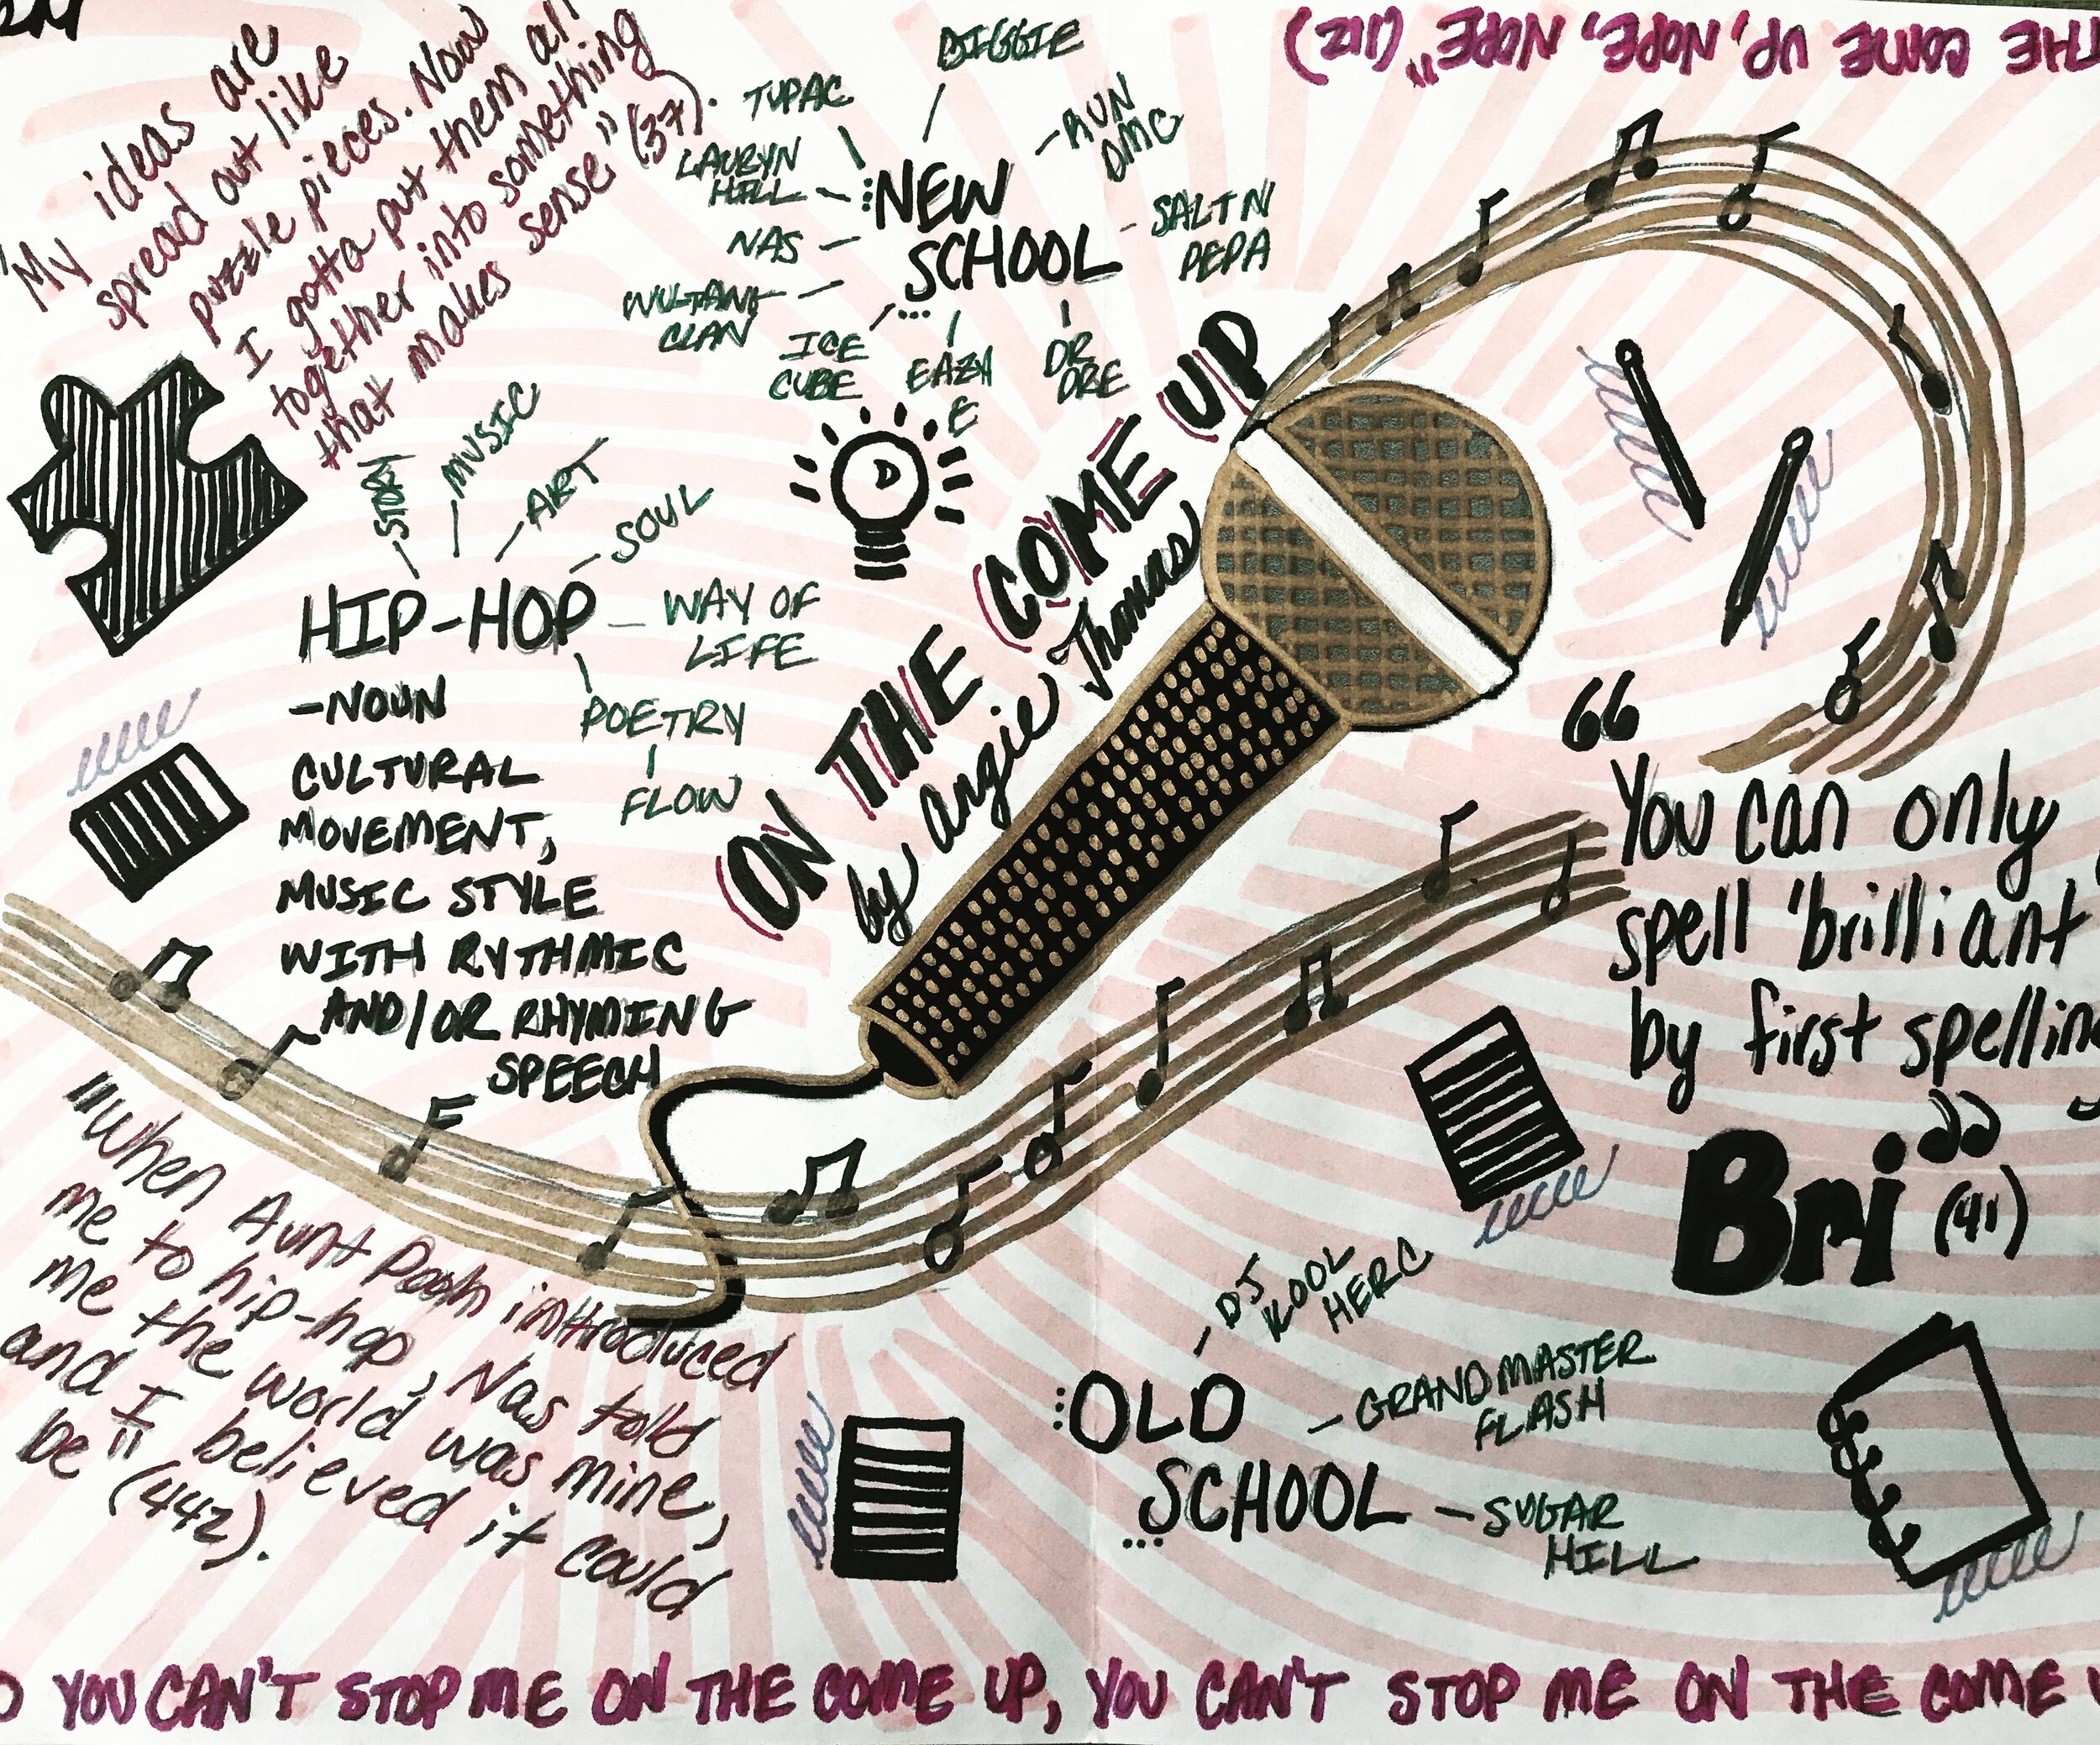 "My ideas are
spread out like
puzzle pieces. Now
I gotta put them all
together into something
that makes sense" (37).
THE COME UP, NOPE, NOPE" (212)
BIGGIE
TUPAC
RUN
DMC
LAURYN
HILL
NEW
SCHOOL
SALT N
PEPA
NAS
WUTANG
CLAN
ICE
CUBE
EAZY
E
DR
DRE
STORY
MUSIC
ART
SOUL
HIP-HOP
WAY OF
LIFE
POETRY
FLOW
-NOUN
CULTURAL
MOVEMENT,
MUSIC STYLE
WITH RYTHMIC
AND/OR RHYMING
SPEECH
ON THE COME UP
by Angie Thomas
"
You can only
spell 'brilliant
by first spelling
Bri" (41)
"When Aunt Pooh introduced
me to hip-hop, Nas told
me the world was mine,
and I believed it could
be" (442).
DJ
KOOL
HERC
OLD
SCHOOL
GRANDMASTER
FLASH
SUGAR
HILL
YOU CAN'T STOP ME ON THE COME UP, YOU CAN'T STOP ME ON THE COME